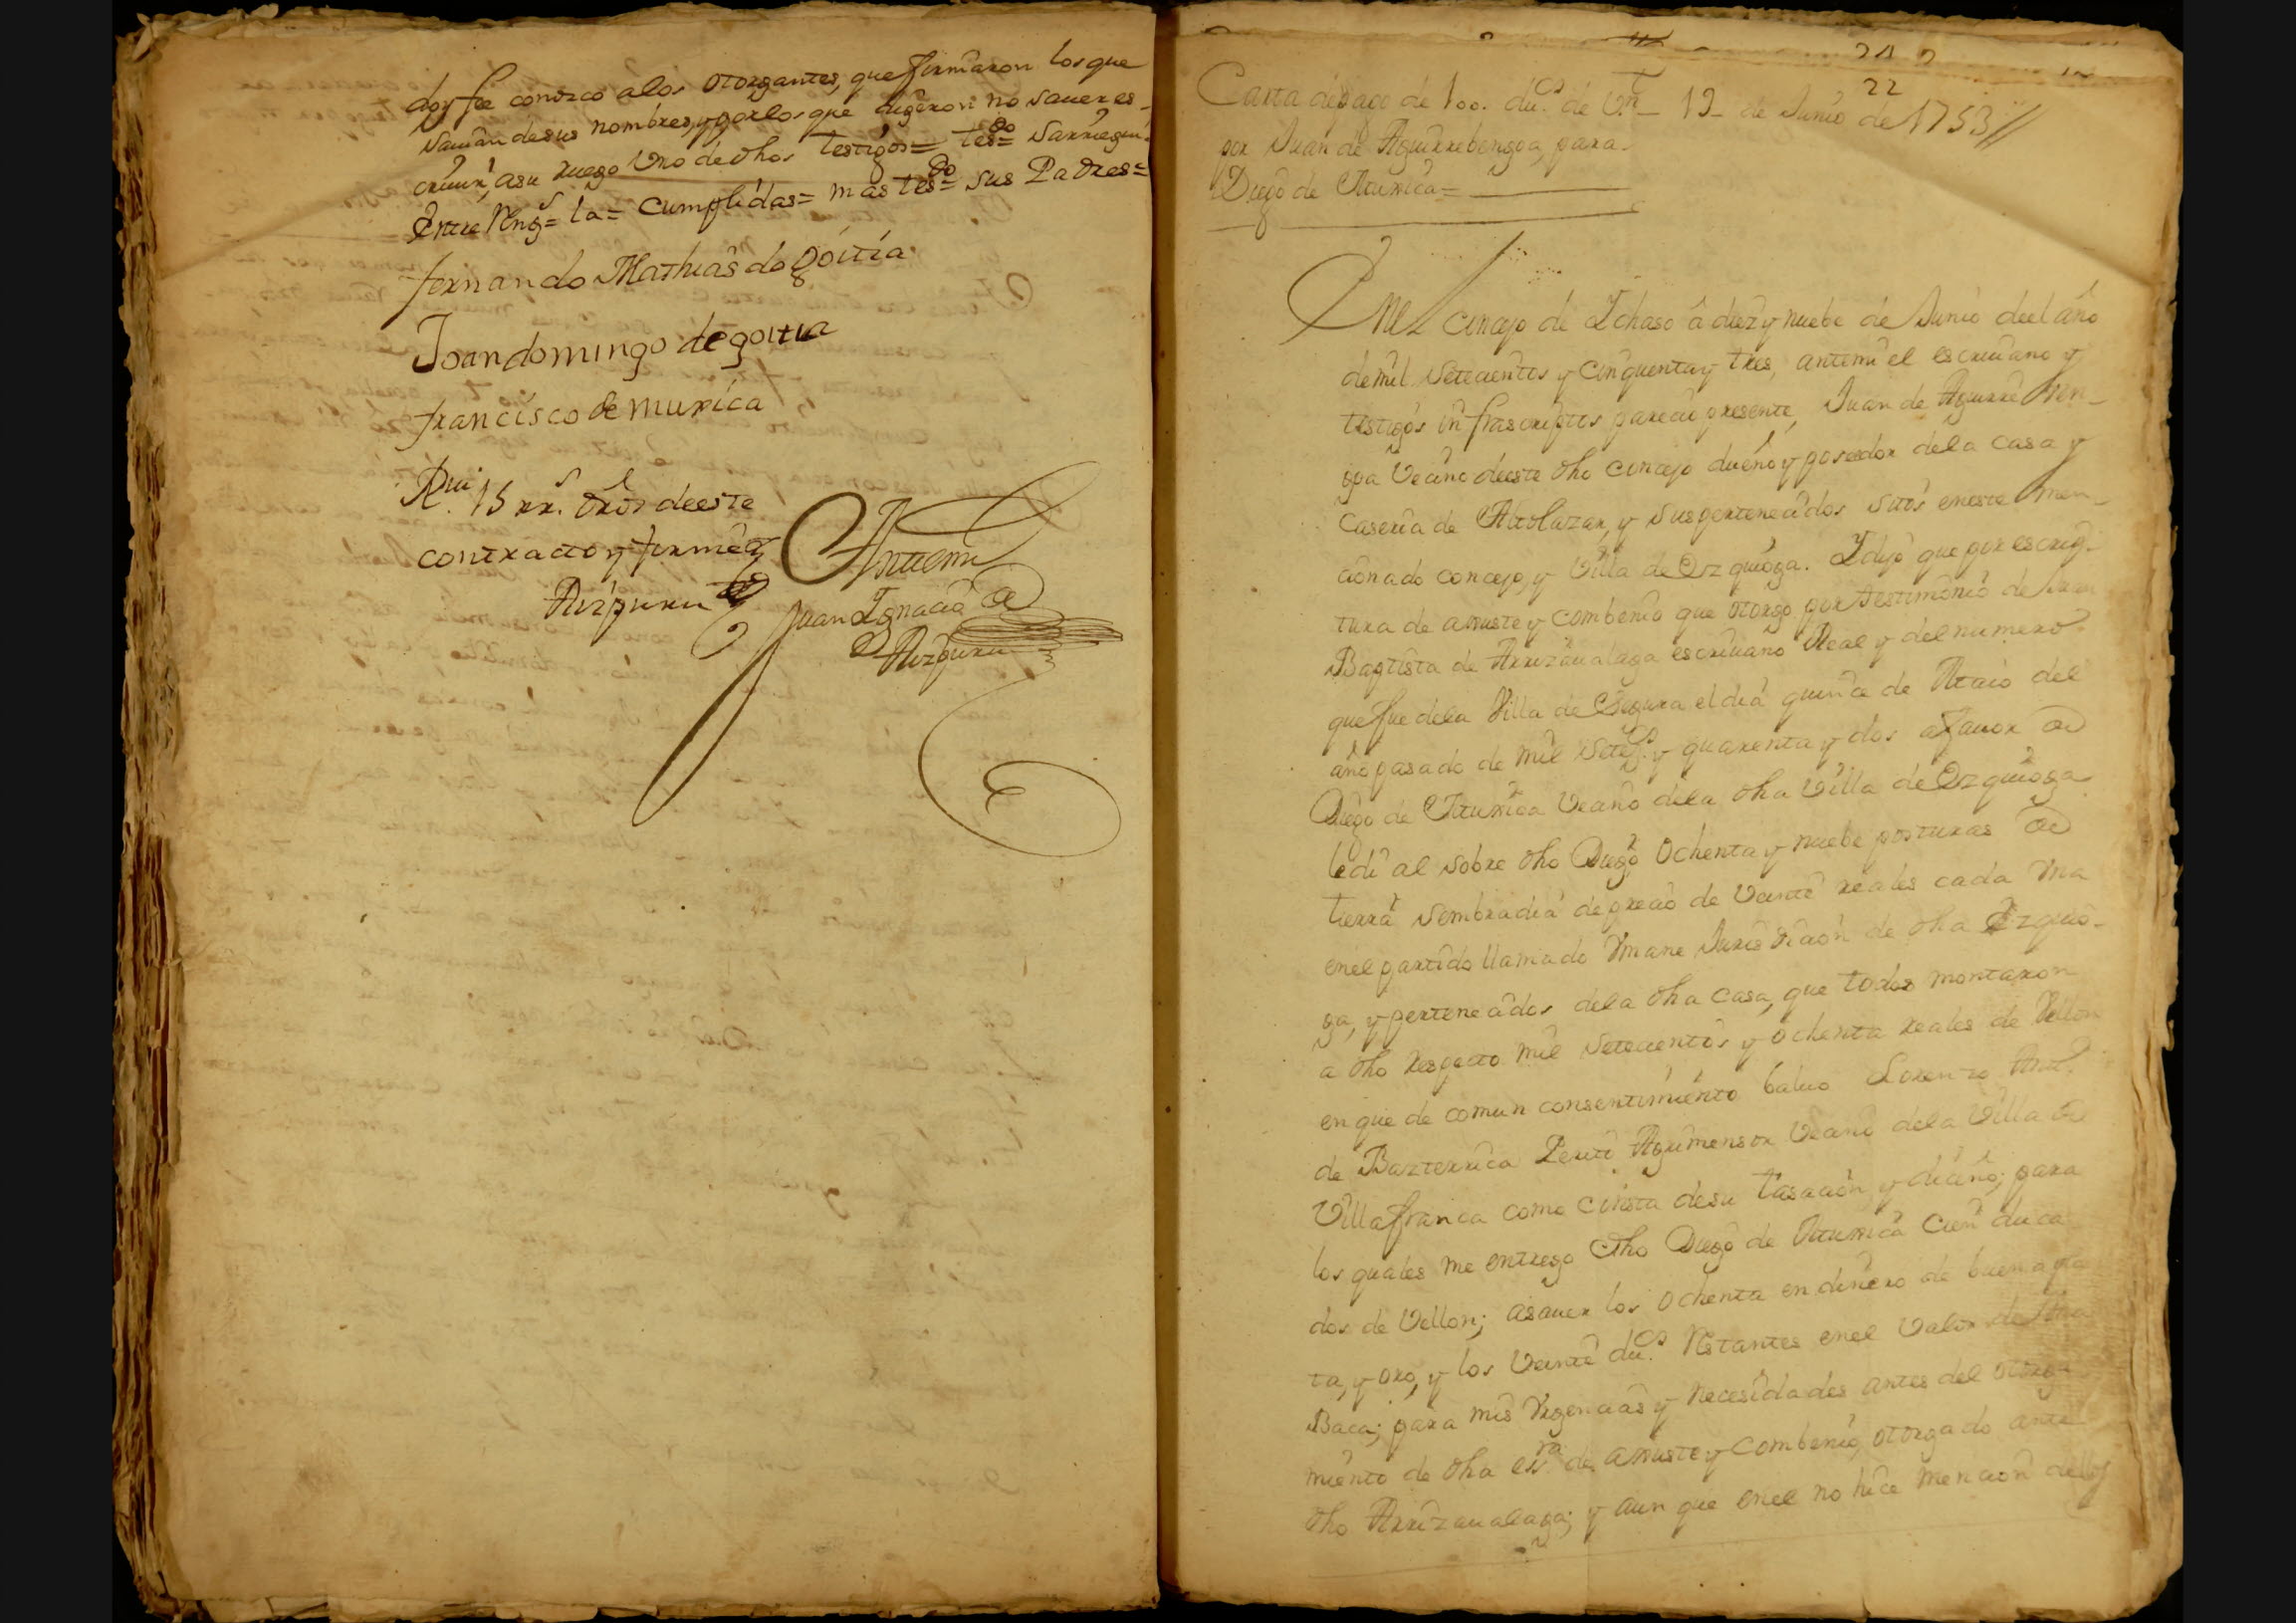 doy fee conozco a los otorgantes, que firmaron los que
sauian de sus nombres, y por los que digeron no sauer es-
criuir, a su ruego Uno de dhos testigos = tesdo= Sarriegui=
Entre Rengs= la= Cumplidas= mas tesdo= sus Padres=
fernando Mathias do goitia
Joan domingo de goitia
francisco de muxica
15 rr.s dros de este
contracto y firmé
Aizpuru
Antemi
Juan Ignacio de
Aizpuru
22
Carta de pago de 100. du.cs de Vn. 19 de Junio de 1753
por Juan de Aguirrebengoa, para
Diego de Iturrica=
En el concejo de Ichaso â diez y nuebe de Junio de el año
de mil Setecientos y cinquenta y tres, antemi el escriuano y
testigos infrascriptos parecio presente, Juan de Aguirre Ben-
goa Vecino de este dho concejo dueño y poseedor de la casa y
Caseria de y sus pertenecidos sitos en este men-
cionado concejo, y Villa de Ezquioga. I dijo que por escrip-
tura de ajuste y combenio que otorgo por testimonio de Juan
Baptista de Arrizaualaga escriuano Real y del numero
que fue de la Villa de Segura el dia quince de Maio del
año pasado de mil Setecs. y quarenta y dos a fauor de
Diego de Iturrica Vecino de la dha Villa de Ezquioga
le di al sobre dho Diego Ochenta y nuebe posturas de
tierra Sembradia de precio de Veinte reales cada Una
en el partido llamado Jurisdicion de dha Ezquio-
ga, y pertenecidos de la dha casa, que todos montaron
a dho respecto mil Setecientos y ochenta reales de Vellon
en que de comun consentimiento baluo Lorenzo
de Bazterrica Perito Agrimensor Vecino de la Villa de
Villafranca como consta de su tasacion, y para
los quales me entrego dho Diego de Iturrica Cien duca
dos de Vellon; asauer los Ochenta en dinero de buena pla
ta, y oro, y los Veinte du.cs Restantes en el Valor de Una
Baca; para mis Vrgencias y Necesidades antes del otorga
miento de dha esra. de ajuste y Combenio, otorgado ante
dho Arrizaualaga; y aun que en el no hice mencion de los